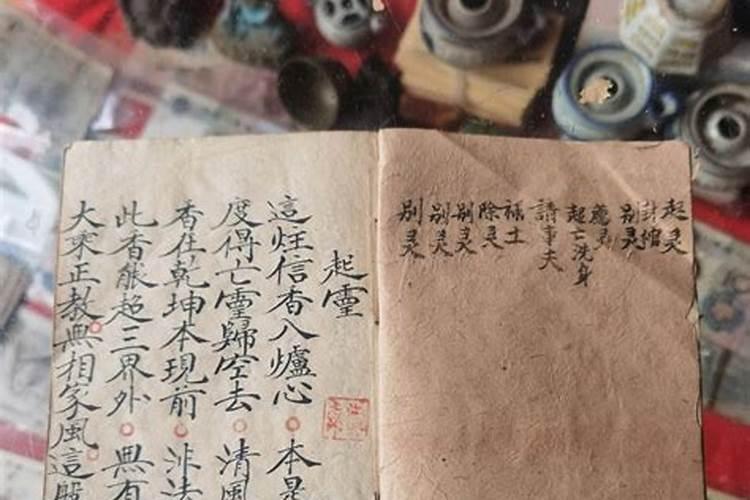 起灵
封棺
别灵
起亡洗身
請事夫
禳土
除灵
别灵
别灵
别灵
起靈
這炷信香入爐心 本是
度得亡靈歸空去 清風
香在乾坤本現前 非法
此香能超三界外 無有
大乘正教無相家風這股